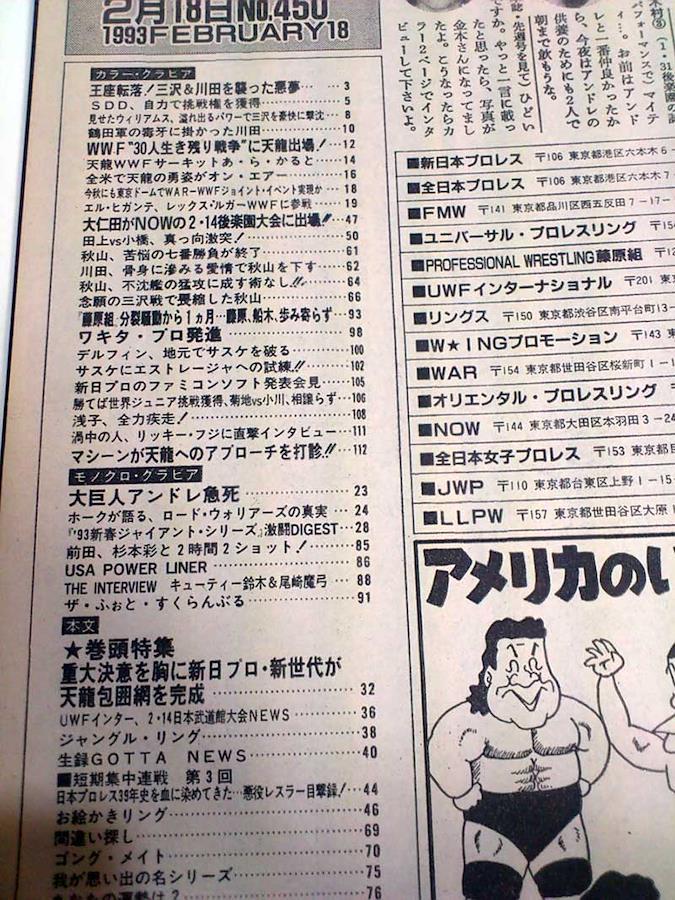 2月18日No.450
1993FEBRUARY18
カラー・グラビア
王座転落!三沢&川田を襲った悪夢…3
SDD、自力で挑戦権を獲得…5
見せたウィリアムス、溢れ出るパワーで三沢を豪快に撃沈…8
鶴田軍の毒牙に掛かった川田…10
WWF“30人生き残り戦争”に天龍出場!…12
天龍WWFサーキットあ・ら・かると…14
全米で天龍の勇姿がオン・エアー…16
今秋にも東京ドームでWAR―WWFジョイント・イベント実現か…18
エル・ヒガンテ、レックス・ルガーWWFに参戦…19
大仁田がNOWの2・14後楽園大会に出場!!…47
田上vs小橋、真っ向激突!…50
秋山、苦悩の七番勝負が終了…61
川田、骨身に滲みる愛情で秋山を下す…62
秋山、不沈艦の猛攻に成す術なし!!…64
念願の三沢戦で萎縮した秋山…66
『藤原組』分裂騒動から1ヵ月…藤原、船木、歩み寄らず…93
ワキタ・プロ発進…98
デルフィン、地元でサスケを破る…100
サスケにエストレージャへの試練!!…102
新日プロのファミコンソフト発表会見…105
勝てば世界ジュニア挑戦権獲得、菊地vs小川、相譲らず…106
浅子、全力疾走!…108
渦中の人、リッキー・フジに直撃インタビュー…111
マシーンが天龍へのアプローチを打診!!…112
モノクロ・グラビア
大巨人アンドレ急死…23
ホークが語る、ロード・ウォリアーズの真実…24
『'93新春ジャイアント・シリーズ』激闘DIGEST…28
前田、杉本彩と2時間2ショット!…85
USA POWER LINER…86
THE INTERVIEW キューティー鈴木&尾崎魔弓…88
ザ・ふぉと・すくらんぶる…91
本文
★巻頭特集
重大決意を胸に新日プロ・新世代が
天龍包囲網を完成…32
UWFインター、2・14日本武道館大会NEWS…36
ジャングル・リング…38
生録GOTTA NEWS…40
■短期集中連載 第3回
日本プロレス39年史を血に染めてきた…悪役レスラー目撃録!…44
お絵かきリング…46
間違い探し…69
ゴング・メイト…70
我が思い出の名シリーズ…75
あなたの運勢は?…76
木村③(1・31後楽園の試
パフォーマンスで)マイテ
ィ…。お前はアンド
レと一番仲良かったか
ら、今夜はアンドレの
供養のためにも2人で
朝まで飲もうな。
誌・先週号を見て)ひどい
ですか。やっと一言に載っ
たと思ったら、写真が
金本さんになってまし
たよ。こうなったらカ
ラー2ページでインタ
ビューして下さいよ。
■新日本プロレス 〒106 東京都港区六本木6-
■全日本プロレス 〒106 東京都港区六本木7-
■FMW 〒141 東京都品川区西五反田7-17-
■ユニバーサル・プロレスリング 〒15
■PROFESSIONAL WRESTLING藤原組 〒
■UWFインターナショナル 〒201 東京
■リングス 〒150 東京都渋谷区南平台町13-
■W★INGプロモーション 〒143 東
■WAR 〒154 東京都世田谷区桜新町1-1
■オリエンタル・プロレスリング 〒
■NOW 〒144 東京都大田区本羽田3-24
■全日本女子プロレス 〒153 東京都目
■JWP 〒110 東京都台東区上野1-15-
■LLPW 〒157 東京都世田谷区大原1
アメリカのい